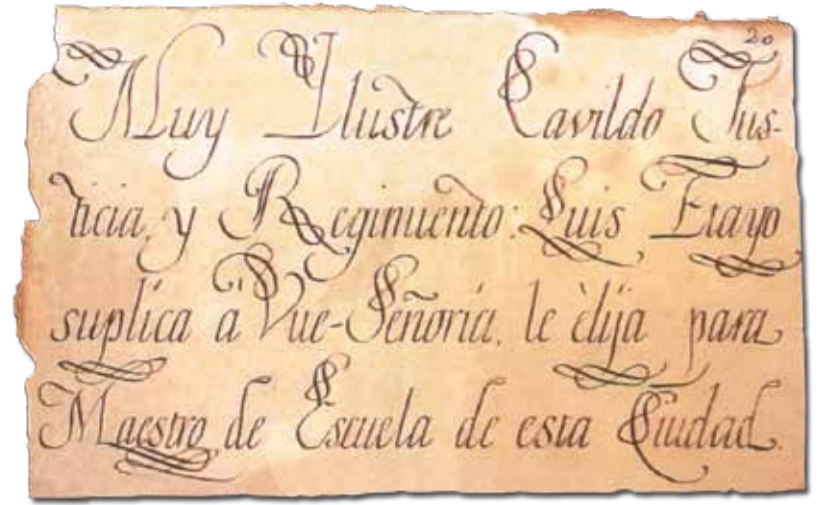 20
Muy Ilustre Cavildo Jus-
ticia, y Regimiento: Luis Erayo
suplica à Vue-Señoria, le èlija para
Maestro de Escuela de esta Ciudad.